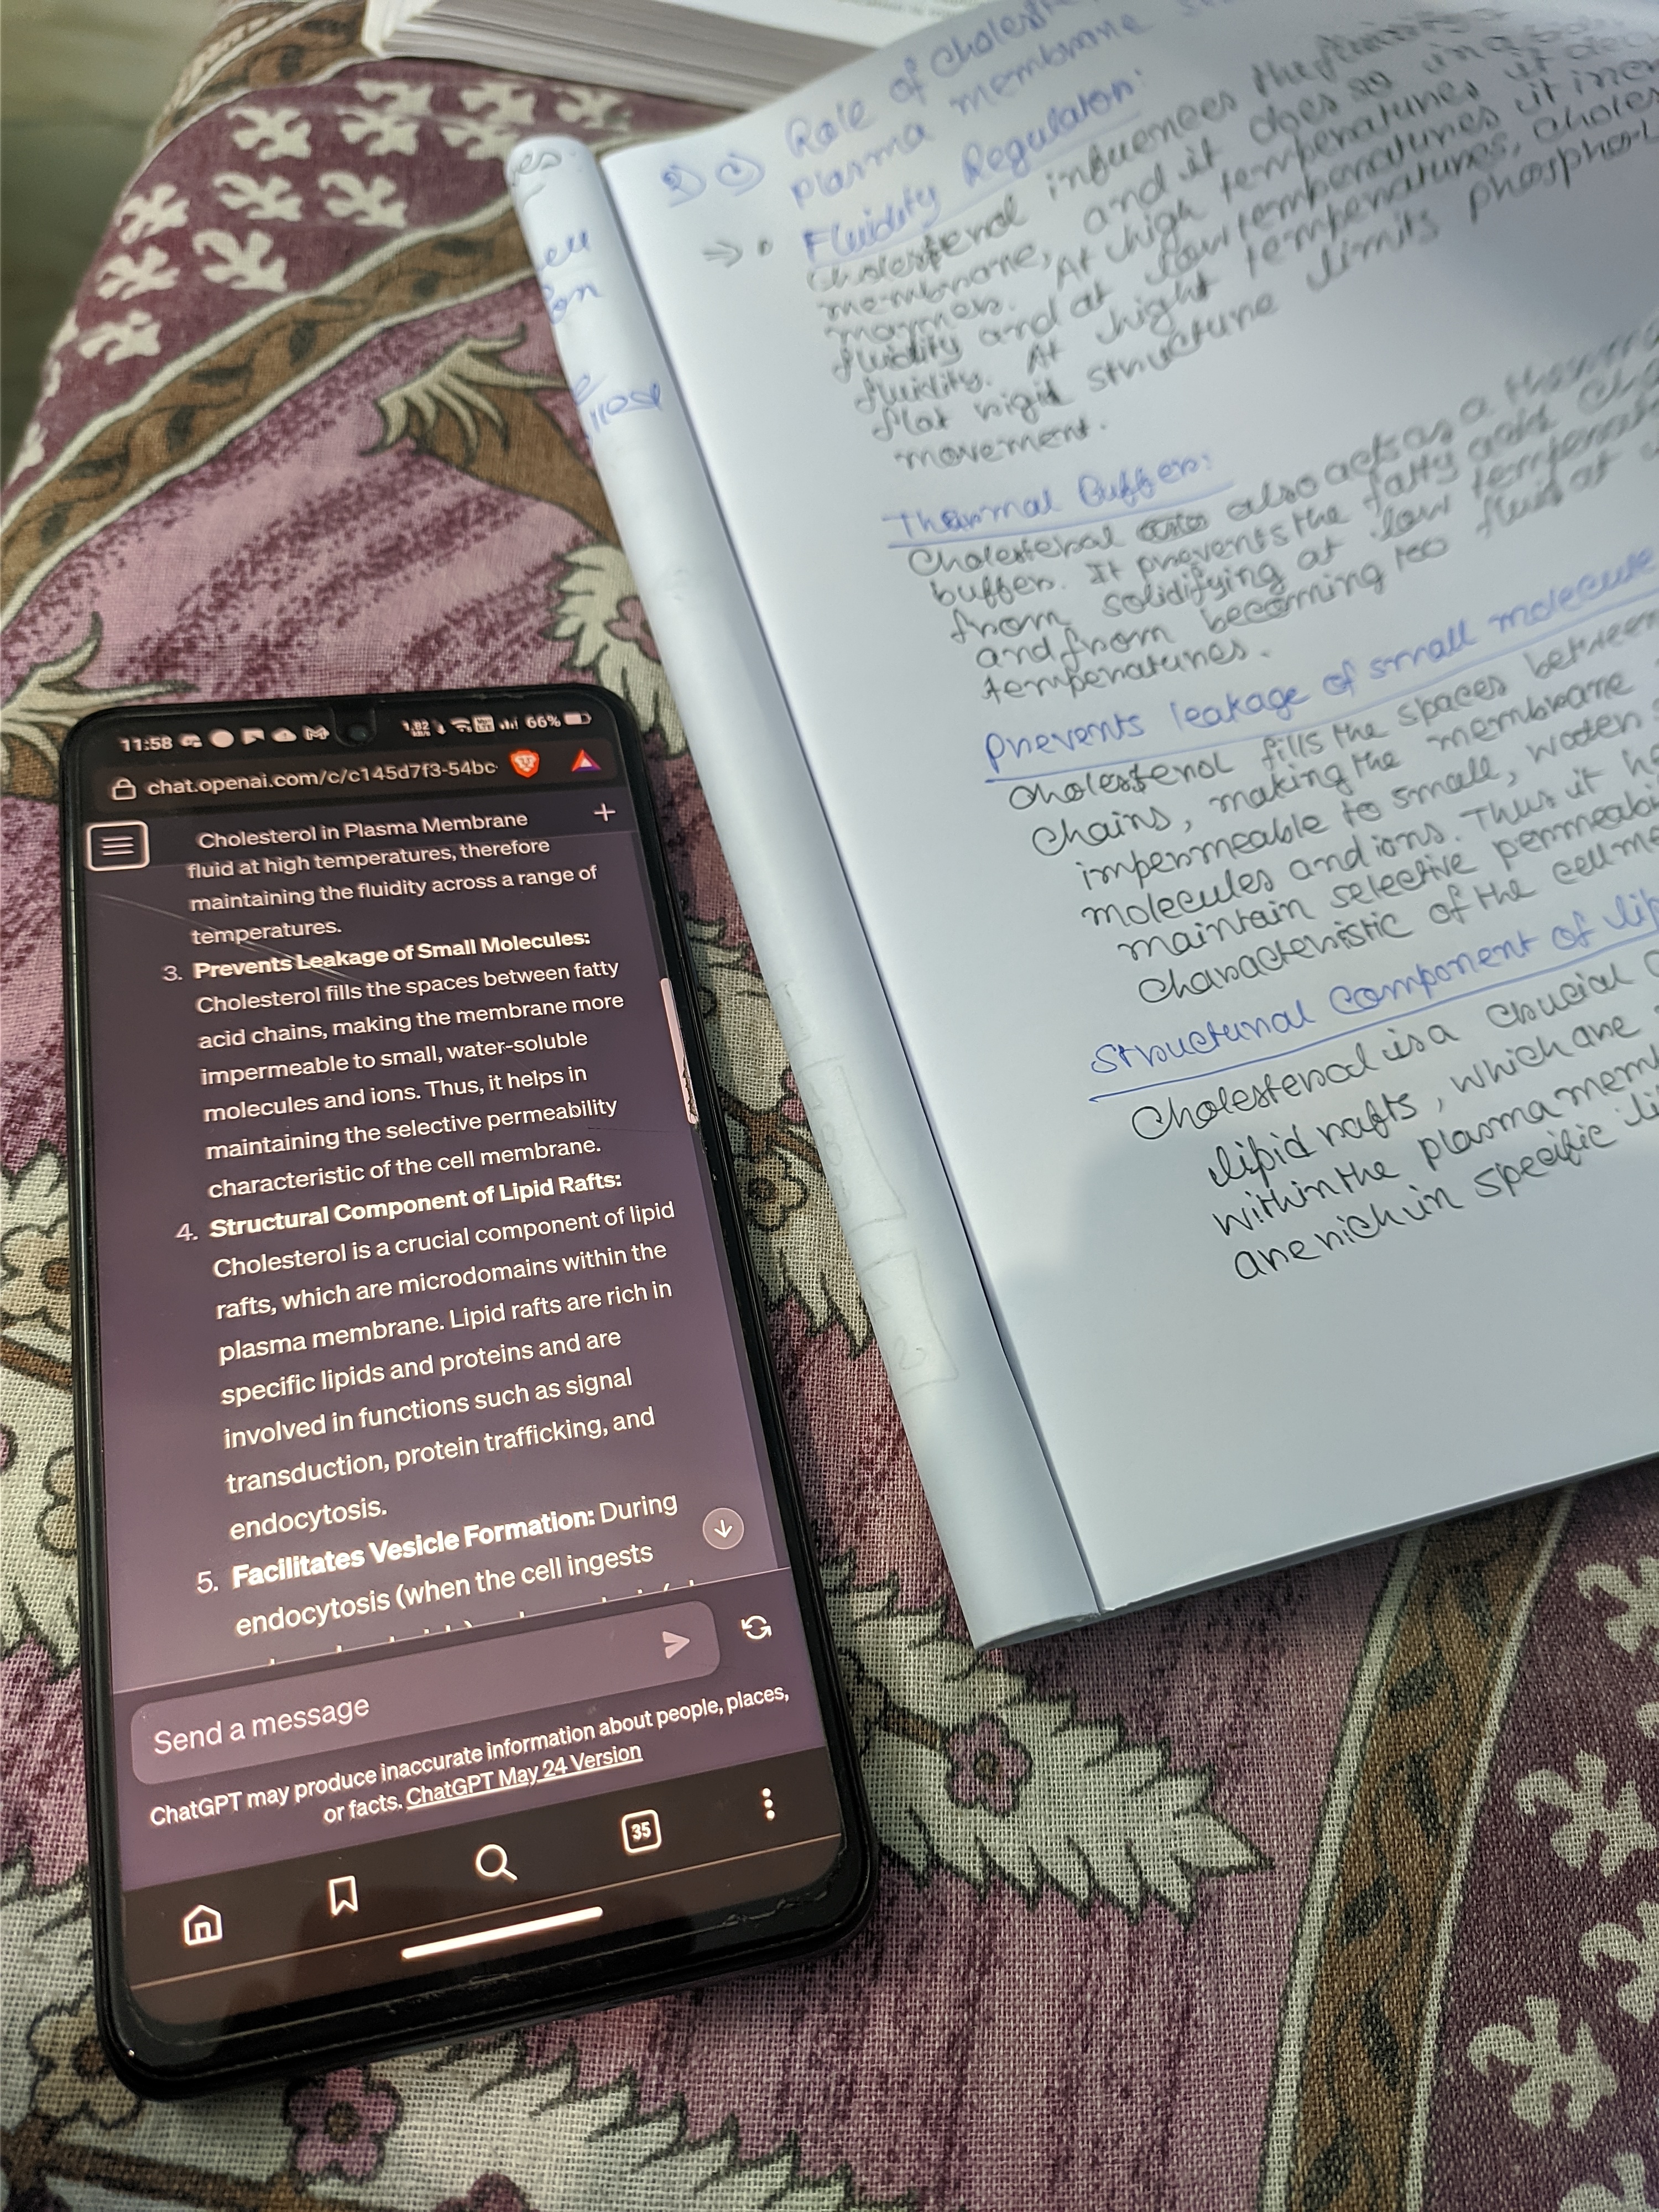 11:58
1.82
66%
chat.openai.com/c/c145d7f3-54bc
Cholesterol in Plasma Membrane
fluid at high temperatures, therefore
maintaining the fluidity across a range of
temperatures.
3. Prevents Leakage of Small Molecules:
Cholesterol fills the spaces between fatty
acid chains, making the membrane more
impermeable to small, water-soluble
molecules and ions. Thus, it helps in
maintaining the selective permeability
characteristic of the cell membrane.
4. Structural Component of Lipid Rafts:
Cholesterol is a crucial component of lipid
rafts, which are microdomains within the
plasma membrane. Lipid rafts are rich in
specific lipids and proteins and are
involved in functions such as signal
transduction, protein trafficking, and
endocytosis.
5. Facilitates Vesicle Formation: During
endocytosis (when the cell ingests
Send a message
ChatGPT may produce inaccurate information about people, places,
or facts. ChatGPT May 24 Version
35
Role of Cholest
plasma membrane
Fluidity Regulation:
Cholesterol influences the fluidity
membrane, and it does so in a
manner. At high temperatures it
fluidity and at low temperatures it
fluidity. At hight temperatures, choles
flat rigid structure limits phospho-l
movement.
Thermal Buffer:
Cholesterol also acts as a therma
buffer. It prevents the fatty acid cha
from solidifying at low temperat
and from becoming too fluid at
temperatures.
Prevents leakage of small molecule
Cholesterol fills the spaces between
chains, making the membrane
impermeable to small, water
molecules and ions. Thus it he
maintain selective permeabi
characteristic of the cell me
Structural Component of lip
Cholesterol is a crucial
lipid rafts, which are
within the plasma mem
are rich in specific li